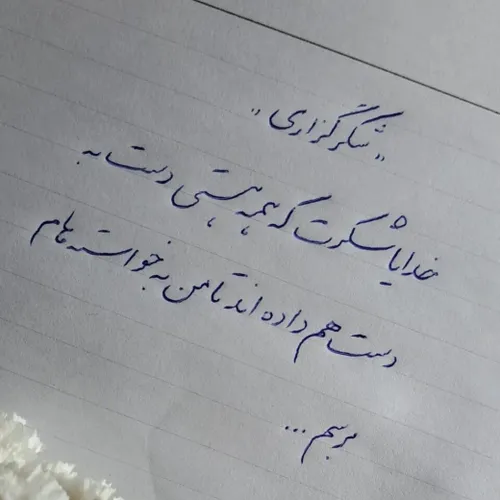 "شکرگزاری"
خدایا شکرت که همه هستی دست به
دست هم داده اند تا من به خواسته هام
برسم ...